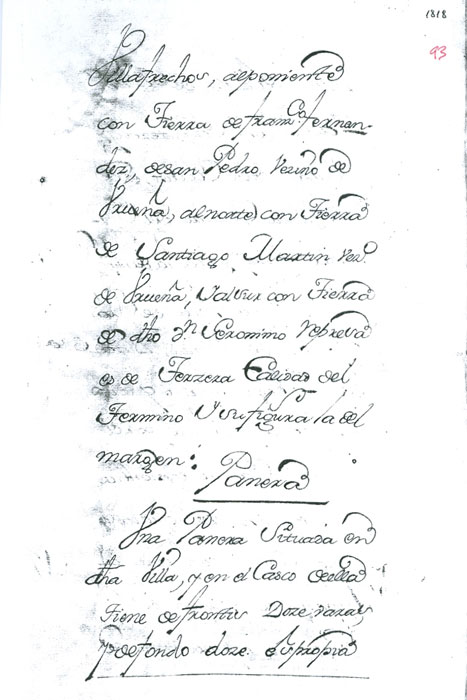 1818
93
Villafrechos, alponiente
con Tierra defran.co fernan-
dez, desan Pedro Vezino de
Vrueña, alnorte con Tierra
de Santiago Martin Vez.o
de Vrueña, Ialsur con Tierra
de dho Dn Geronimo Nebreda
es de Terzera Calidad del
Termino Ysufigura la del
margen:
Panera
Vna Panera Situada en
dha Villa, y en el Casco deella
tiene defrontis Doze varas,
y defondo doze espropia